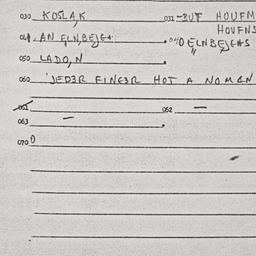 030 KOSLAK 031 - BUF HOUFM
HOUFNS
041 AN ELN,BEJEH 040 ELNBEJEHS
050 LADO,N
060 'JED3R FING3R HOT A NOMEN
061 — 062 —
063 —
070 0)